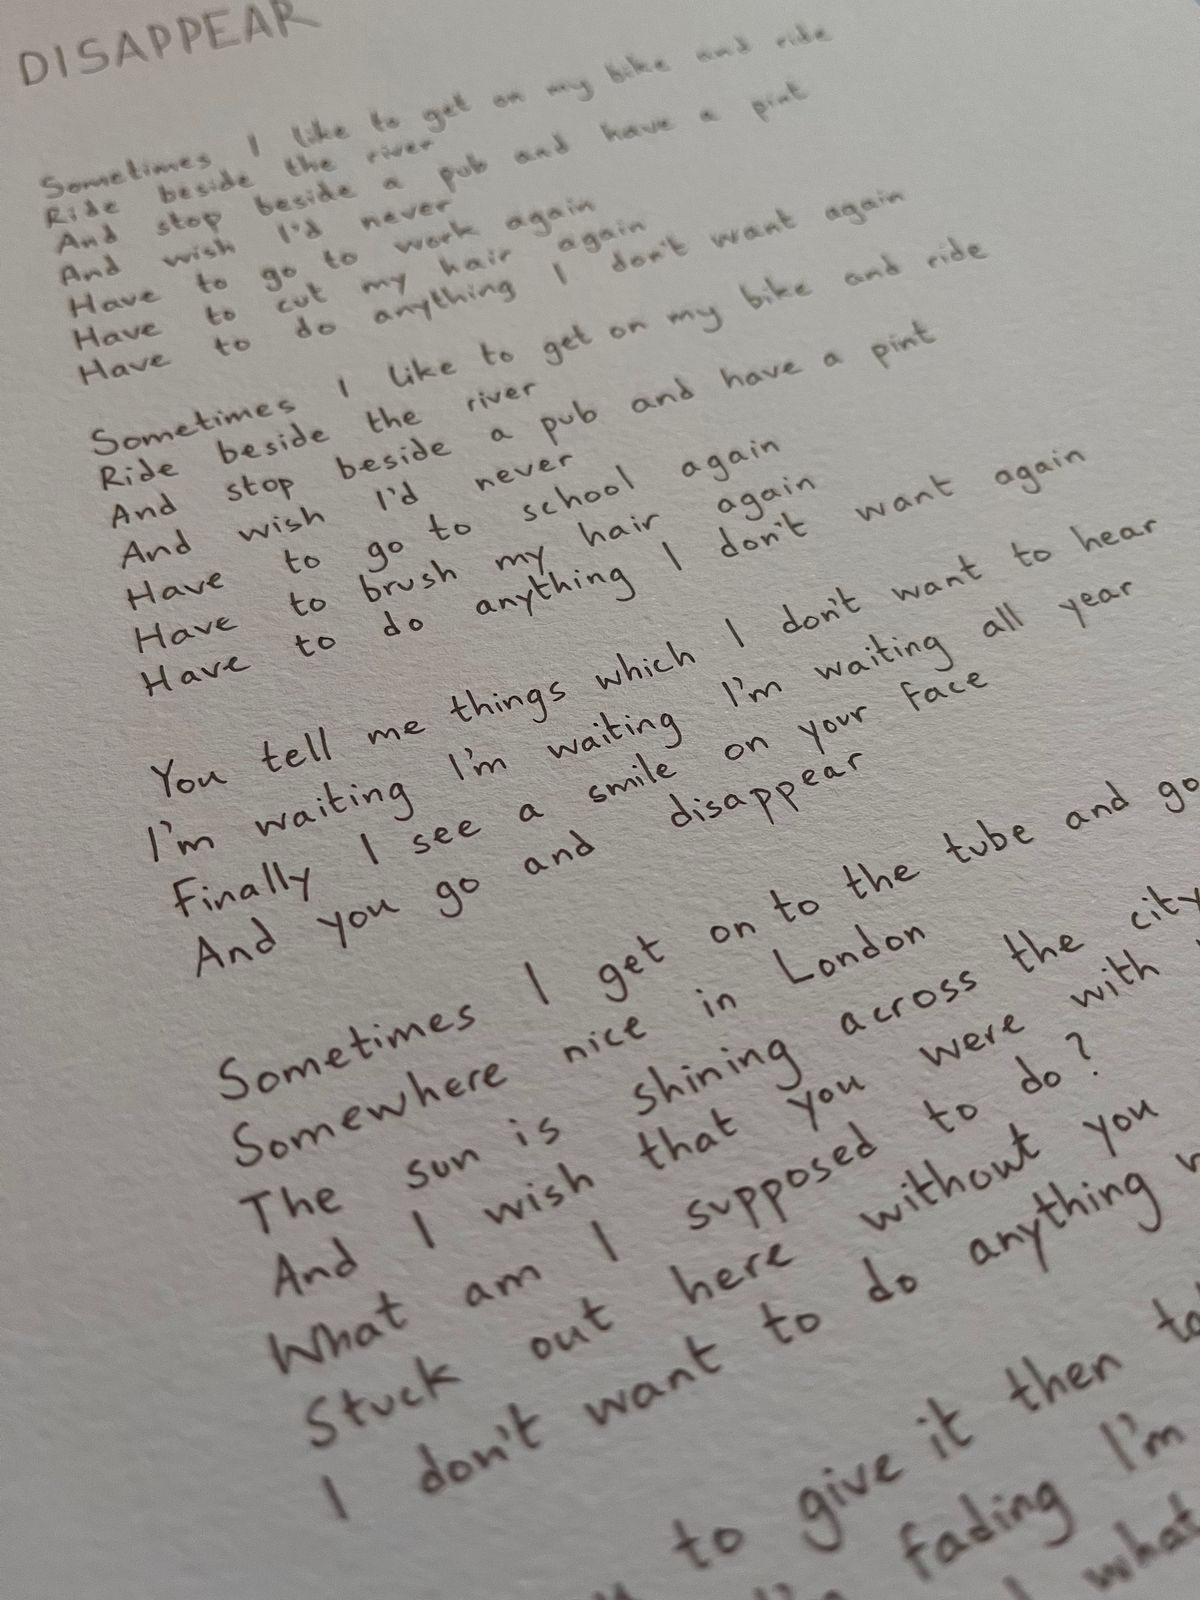 DISAPPEAR
Sometimes I like to get on my bike and ride
Ride beside the river
And stop beside a pub and have a pint
And wish I'd never
Have to go to work again
Have to cut my hair again
Have to do anything I don't want again
Sometimes I like to get on my bike and ride
Ride beside the river
And stop beside a pub and have a pint
And wish I'd never
Have to go to school again
Have to brush my hair again
Have to do anything I don't want again
You tell me things which I don't want to hear
I'm waiting I'm waiting I'm waiting all year
Finally I see a smile on your face
And you go and disappear
Sometimes I get on to the tube and go
Somewhere nice in London
The sun is shining across the city
And I wish that you were with
What am I supposed to do?
Stuck out here without you
I don't want to do anything
to give it then
fading I'm
what